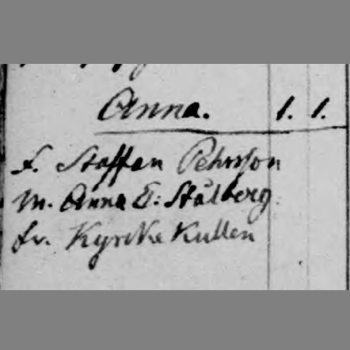 Anna. 1. 1.
f. Staffan Pehrsson
m. Anna E: Stålberg
fr. Kyrkekullen